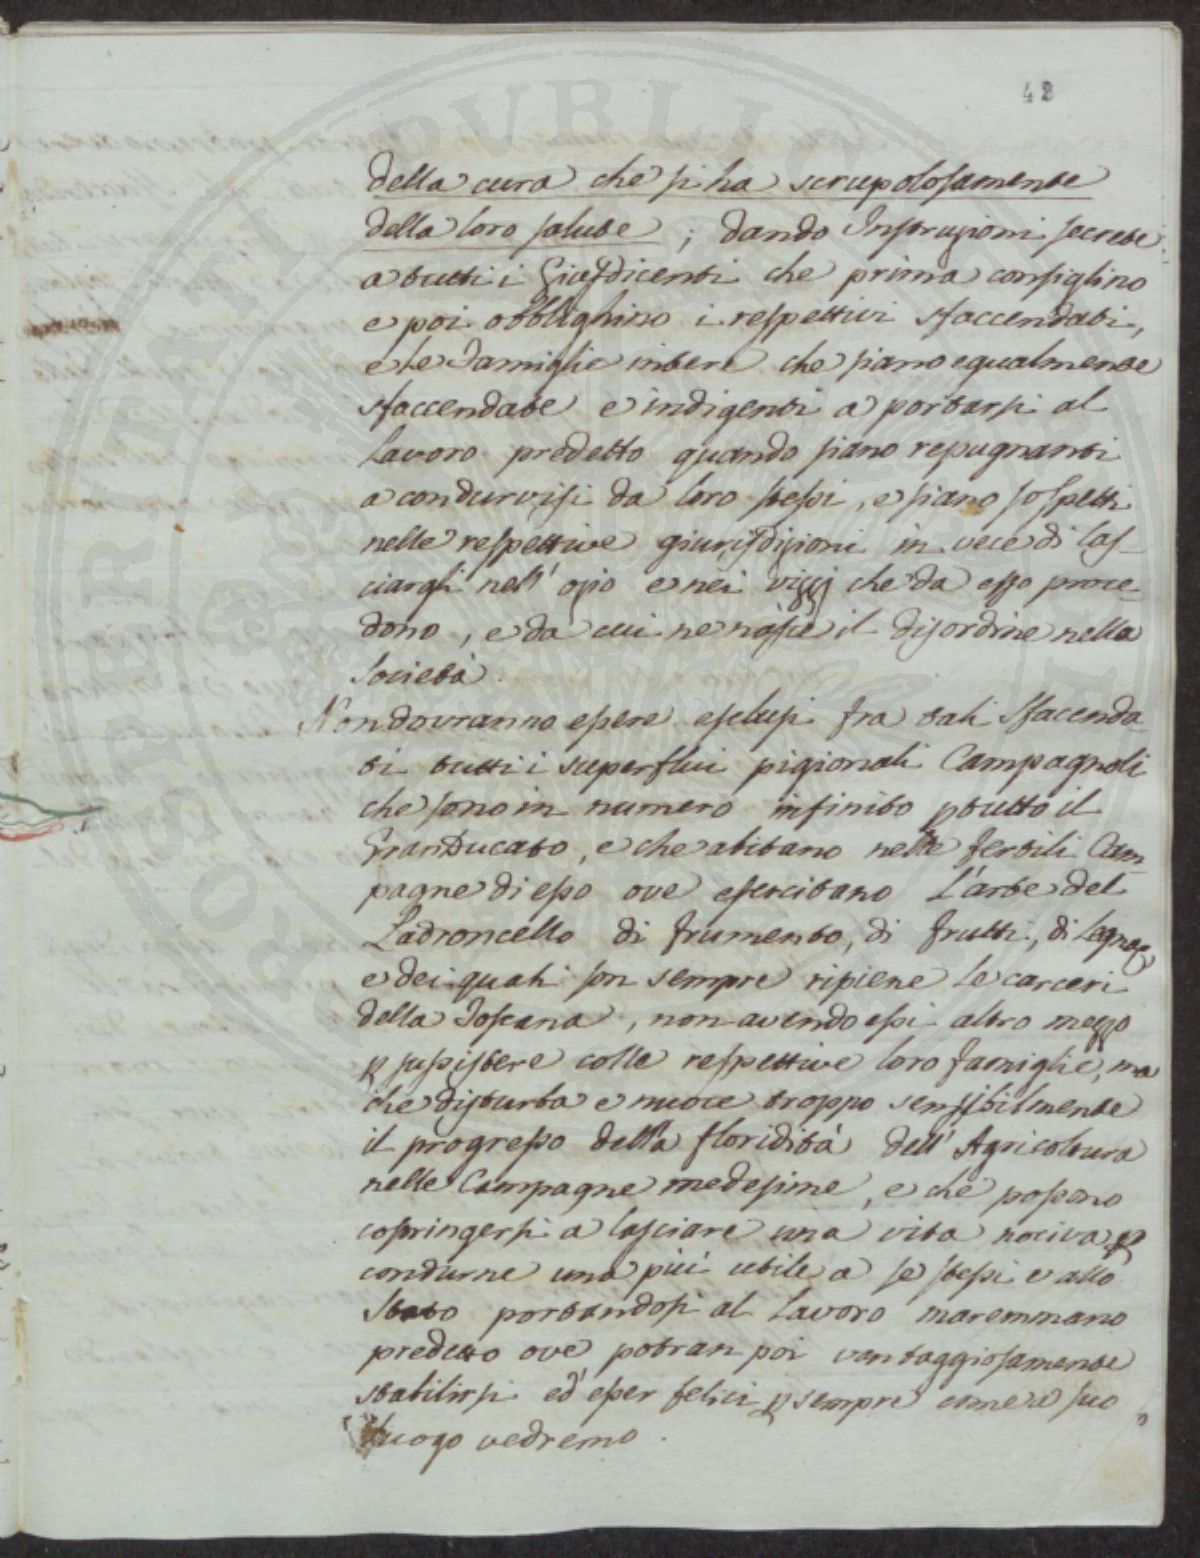 42
della cura che si ha scrupolosamente
della loro salute ; dando Instruzioni secrete
a tutti i Giusdicenti che prima consiglino
e poi obblighino i respettivi sfaccendati,
e le Famiglie intere che siano egualmente
sfaccendate e indigenti a portarsi al
Lavoro predetto quando siano repugnanti
a condurvisi da loro stessi, e siano sospetti
nelle respettive giurisdizioni in vece di las-
ciargli nell' ozio e nei vizzj che da esso proce-
dono, e da cui ne nasce il disordine nella
Società.
Non dovranno essere esclusi fra tali Sfacenda-
ti tutti i superflui pigionali Campagnoli
che sono in numero infinito p tutto il
GranDucato, e che abitano nelle fertili Cam-
pagne di esso ove esercitano L'arte del
Ladroncello di frumento, di frutti, di Legna
e dei quali son sempre ripiene le carceri
della Toscana, non avendo essi altro mezzo
p sussistere colle respettive loro famiglie, ma
che disturba e nuoce troppo sensibilmente
il progresso della floridità dell' Agricoltura
nelle Campagne medesime, e che possono
costringersi a lasciare una vita nociva p
condurne una più utile a se stessi e allo
Stato portandosi al Lavoro maremmano
predetto ove potran poi vantaggiosamente
stabilirsi ed esser felici p sempre come a suo
Luogo vedremo.
PROSPERITATI PUBLICAE